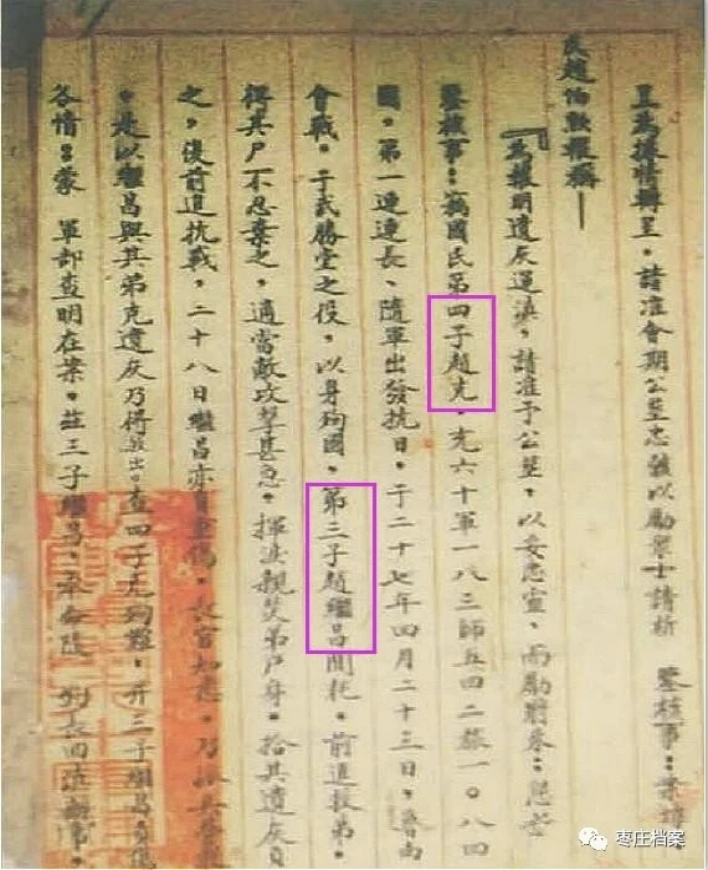 呈為據情轉呈，請准會期公塟忠骸以勵軍士請祈　鑒核事：案
民趙伯 報稱——
『為報明遺灰運滇，請准予公塟，以妥忠靈、而勵將來：懇
鑒核事：竊國民第四子趙克，充六十軍一八三師五四二旅一〇八四
團，第一連連長、隨軍出發抗日，于二十七年四月二十三日，魯南
會戰，于武勝堂之役，以身殉國，第三子趙繼昌聞耗，前進救弟，
得其尸不忍棄之，適當敵攻擊甚急，揮淚親焚弟尸身，拾其遺灰負
之，復前進抗戰，二十八日繼昌亦負重傷，長官
，是以繼昌與其弟克遺灰乃得救出，查四子克殉難，并三子繼昌負傷
各情：蒙　軍部查明在案。茲三子繼昌、奉命隨　　長回滇
枣庄档案